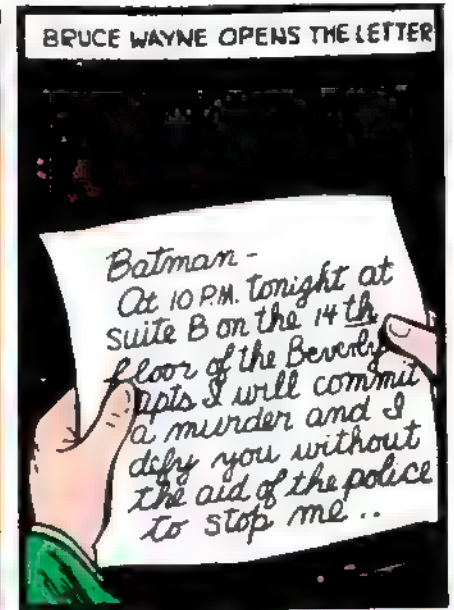 BRUCE WAYNE OPENS THE LETTER
Batman -
At 10 P.M. tonight at
suite B on the 14 th
floor of the Beverly
apts I will commit
a murder and I
defy you without
the aid of the police
to stop me ..